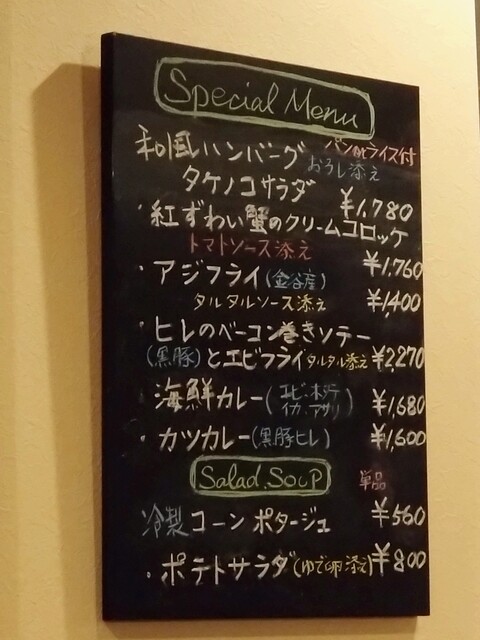 Special Menu
パンorライス付
和風ハンバーグ おろし添え
タケノコサラダ ¥1,780
・紅ずわい蟹のクリームコロッケ
トマトソース添え ¥1,760
・アジフライ(金谷産)
タルタルソース添え ¥1,400
・ヒレのベーコン巻きソテー
(黒豚)とエビフライタルタル添え ¥2270
海鮮カレー(エビ・ホタテ
イカ、アサリ) ¥1,680
・カツカレー(黒豚ヒレ) ¥1,600
Salad, Soup 単品
冷製コーンポタージュ ¥560
・ポテトサラダ(ゆで卵添え) ¥800